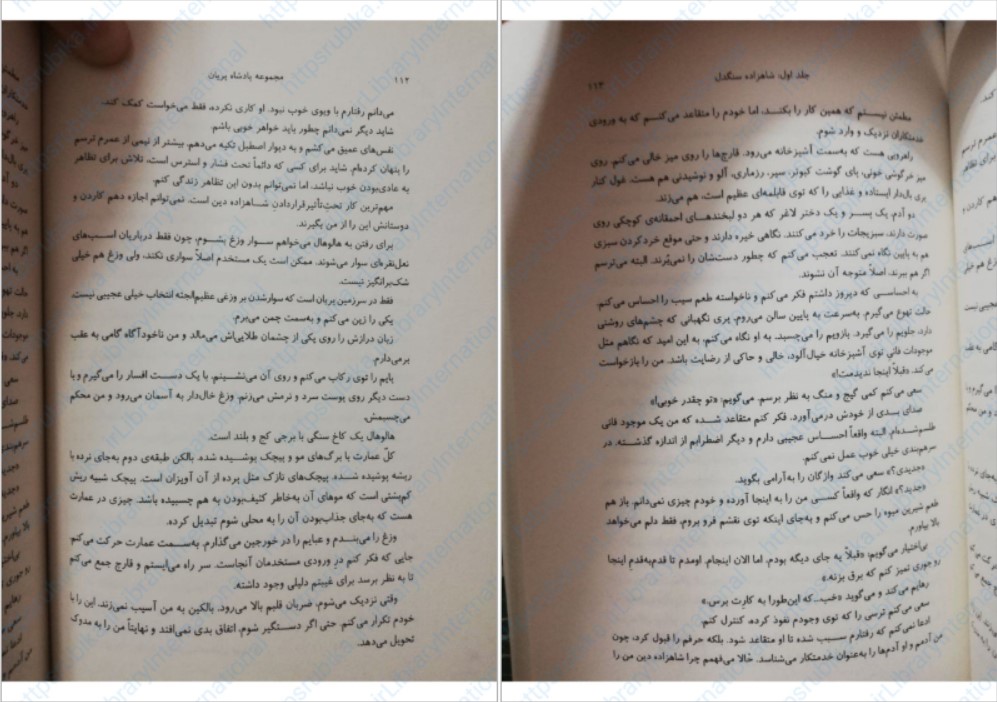 ۱۱۲
مجموعه پادشاه پریان
می‌دانم رفتارم با ویوی خوب نبود. او کاری نکرده، فقط می‌خواست کمک کند.
شاید دیگر نمی‌دانم چطور باید خواهر خوبی باشم.
نفس‌های عمیق می‌کشم و به دیوار اصطبل تکیه می‌دهم. بیشتر از نیمی از عمرم ترسم
را پنهان کرده‌ام. شاید برای کسی که دائماً تحت فشار و استرس است، تلاش برای تظاهر
به عادی‌بودن خوب نباشد. اما نمی‌توانم بدون این تظاهر زندگی کنم.
مهم‌ترین کار تحت‌تأثیر قراردادنِ شاهزاده دین است. نمی‌توانم اجازه دهم کاردن و
دوستانش این را از من بگیرند.
برای رفتن به هالوهال می‌خواهم سوار وزغ بشوم، چون فقط درباریان اسب‌های
نعل‌نقره‌ای سوار می‌شوند. ممکن است یک مستخدم اصلاً سواری نکند، ولی وزغ هم خیلی
شک‌برانگیز نیست.
فقط در سرزمین پریان است که سوارشدن بر وزغی عظیم‌الجثه انتخاب خیلی عجیبی نیست.
یکی را زین می‌کنم و به‌سمت چمن می‌برم.
زبان درازش را روی یکی از چشمان طلایی‌اش می‌مالد و من ناخودآگاه گامی به عقب
برمی‌دارم.
پایم را توی رکاب می‌کنم و روی آن می‌نشینم. با یک دست افسار را می‌گیرم و با
دست دیگر روی پوست سرد و نرمش می‌زنم. وزغ خال‌دار به آسمان می‌رود و من محکم
می‌چسبمش.
هالوهال یک کاخ سنگی با برجی کج و بلند است.
کلّ عمارت با برگ‌های مو و پیچک پوشیده شده. بالکن طبقه‌ی دوم به‌جای نرده با
ریشه پوشیده شده. پیچک‌های نازک مثل پرده از آن آویزان است. پیچک شبیه ریش
کم‌پشتی است که موهای آن به‌خاطر کثیف‌بودن به هم چسبیده باشد. چیزی در عمارت
هست که به‌جای جذاب‌بودن آن را به محلی شوم تبدیل کرده.
وزغ را می‌بندم و عبایم را در خورجین می‌گذارم. به‌سمت عمارت حرکت می‌کنم
جایی که فکر کنم درِ ورودی مستخدمان آنجاست. سر راه می‌ایستم و قارچ جمع می‌کنم
تا به نظر برسد برای غیبتم دلیلی وجود داشته.
وقتی نزدیک می‌شوم، ضربان قلبم بالا می‌رود. بالکین به من آسیب نمی‌زند. این را با
خودم تکرار می‌کنم. حتی اگر دستگیر شوم، اتفاق بدی نمی‌افتد و نهایتاً من را به مدوک
تحویل می‌دهد.
جلد اول: شاهزاده سنگدل
۱۱۳
مطمئن نیستم که همین کار را بکند، اما خودم را متقاعد می‌کنم که به ورودی
خدمتکاران نزدیک و وارد شوم.
راهرویی هست که به‌سمت آشپزخانه می‌رود. قارچ‌ها را روی میز خالی می‌کنم. روی
میز خرگوشی خونی، پای گوشت کبوتر، سیر، رزماری، آلو و نوشیدنی هم هست. غول کنار
پری بال‌دار ایستاده و غذایی را که توی قابلمه‌ای عظیم است، هم می‌زند.
دو آدم، یک پسر و یک دختر لاغر که هر دو لبخندهای احمقانه‌ی کوچکی روی
صورت دارند، سبزیجات را خرد می‌کنند. نگاهی خیره دارند و حتی موقع خردکردن سبزی
هم به پایین نگاه نمی‌کنند. تعجب می‌کنم که چطور دست‌شان را نمی‌بُرند. البته می‌ترسم
اگر هم ببرند، اصلاً متوجه آن نشوند.
به احساسی که دیروز داشتم فکر می‌کنم و ناخواسته طعم سیب را احساس می‌کنم.
حالت تهوع می‌گیرم. به‌سرعت به پایین سالن می‌روم. پری نگهبانی که چشم‌های روشنی
دارد، جلویم را می‌گیرد. بازویم را می‌چسبد. به او نگاه می‌کنم، به این امید که نگاهم مثل
موجودات فانی توی آشپزخانه خیال‌آلود، خالی و حاکی از رضایت باشد. من را بازخواست
می‌کند. «قبلاً اینجا ندیدمت!»
سعی می‌کنم کمی گیج و منگ به نظر برسم. می‌گویم: «تو چقدر خوبی!»
صدای بدی از خودش درمی‌آورد. فکر کنم متقاعد شده که من یک موجود فانی
طلسم‌شده‌ام. البته واقعاً احساس عجیبی دارم و دیگر اضطرابم از اندازه گذشته. در
سرهم‌بندی خیلی خوب عمل نمی‌کنم.
«جدیدی؟» سعی می‌کند واژگان را به‌آرامی بگوید.
«جدید؟» انگار که واقعاً کسی من را به اینجا آورده و خودم چیزی نمی‌دانم. باز هم
طعم شیرین میوه را حس می‌کنم و به‌جای اینکه توی نقشم فرو بروم، فقط دلم می‌خواهد
بالا بیاورم.
بی‌اختیار می‌گویم: «قبلاً یه جای دیگه بودم، اما الان اینجام. اومدم تا قدم‌به‌قدم اینجا
رو جوری تمیز کنم که برق بزنه.»
رهایم می‌کند و می‌گوید «خب... که این‌طور! به کارت برس.»
سعی می‌کنم ترسی را که توی وجودم نفوذ کرده، کنترل کنم.
ادعا نمی‌کنم که رفتارم سبب شده تا او متقاعد شود. بلکه حرفم را قبول کرد، چون
من آدمم و او آدم‌ها را به‌عنوان خدمتکار می‌شناسد. حالا می‌فهمم چرا شاهزاده دین من را